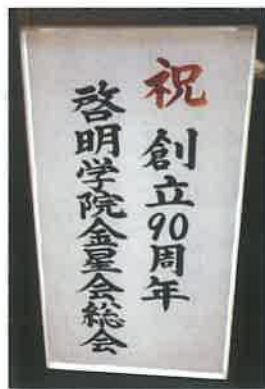 祝 創立90周年
啓明学院金星会総会